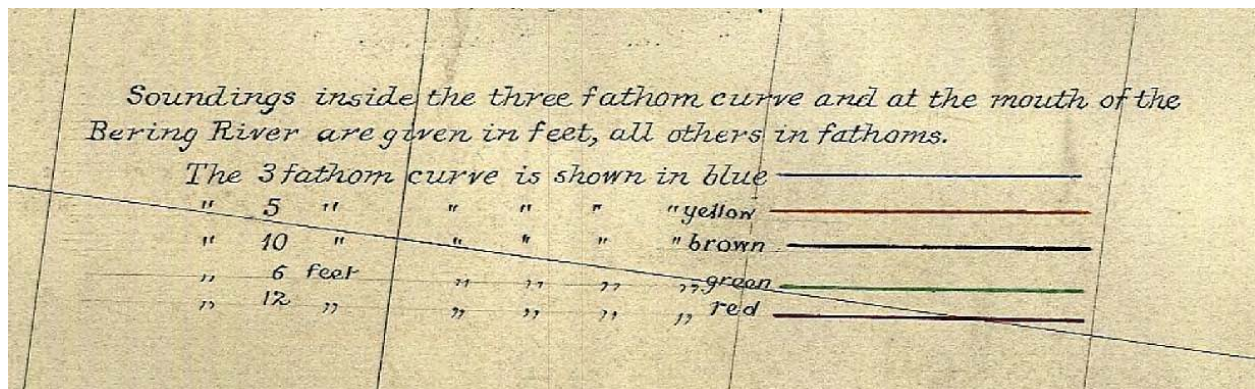 Soundings inside the three fathom curve and at the mouth of the
Bering River are given in feet, all others in fathoms.
The 3 fathom curve is shown in blue
" 5 " " " " " yellow
" 10 " " " " " brown
" 6 feet " " " " green
" 12 " " " " " red